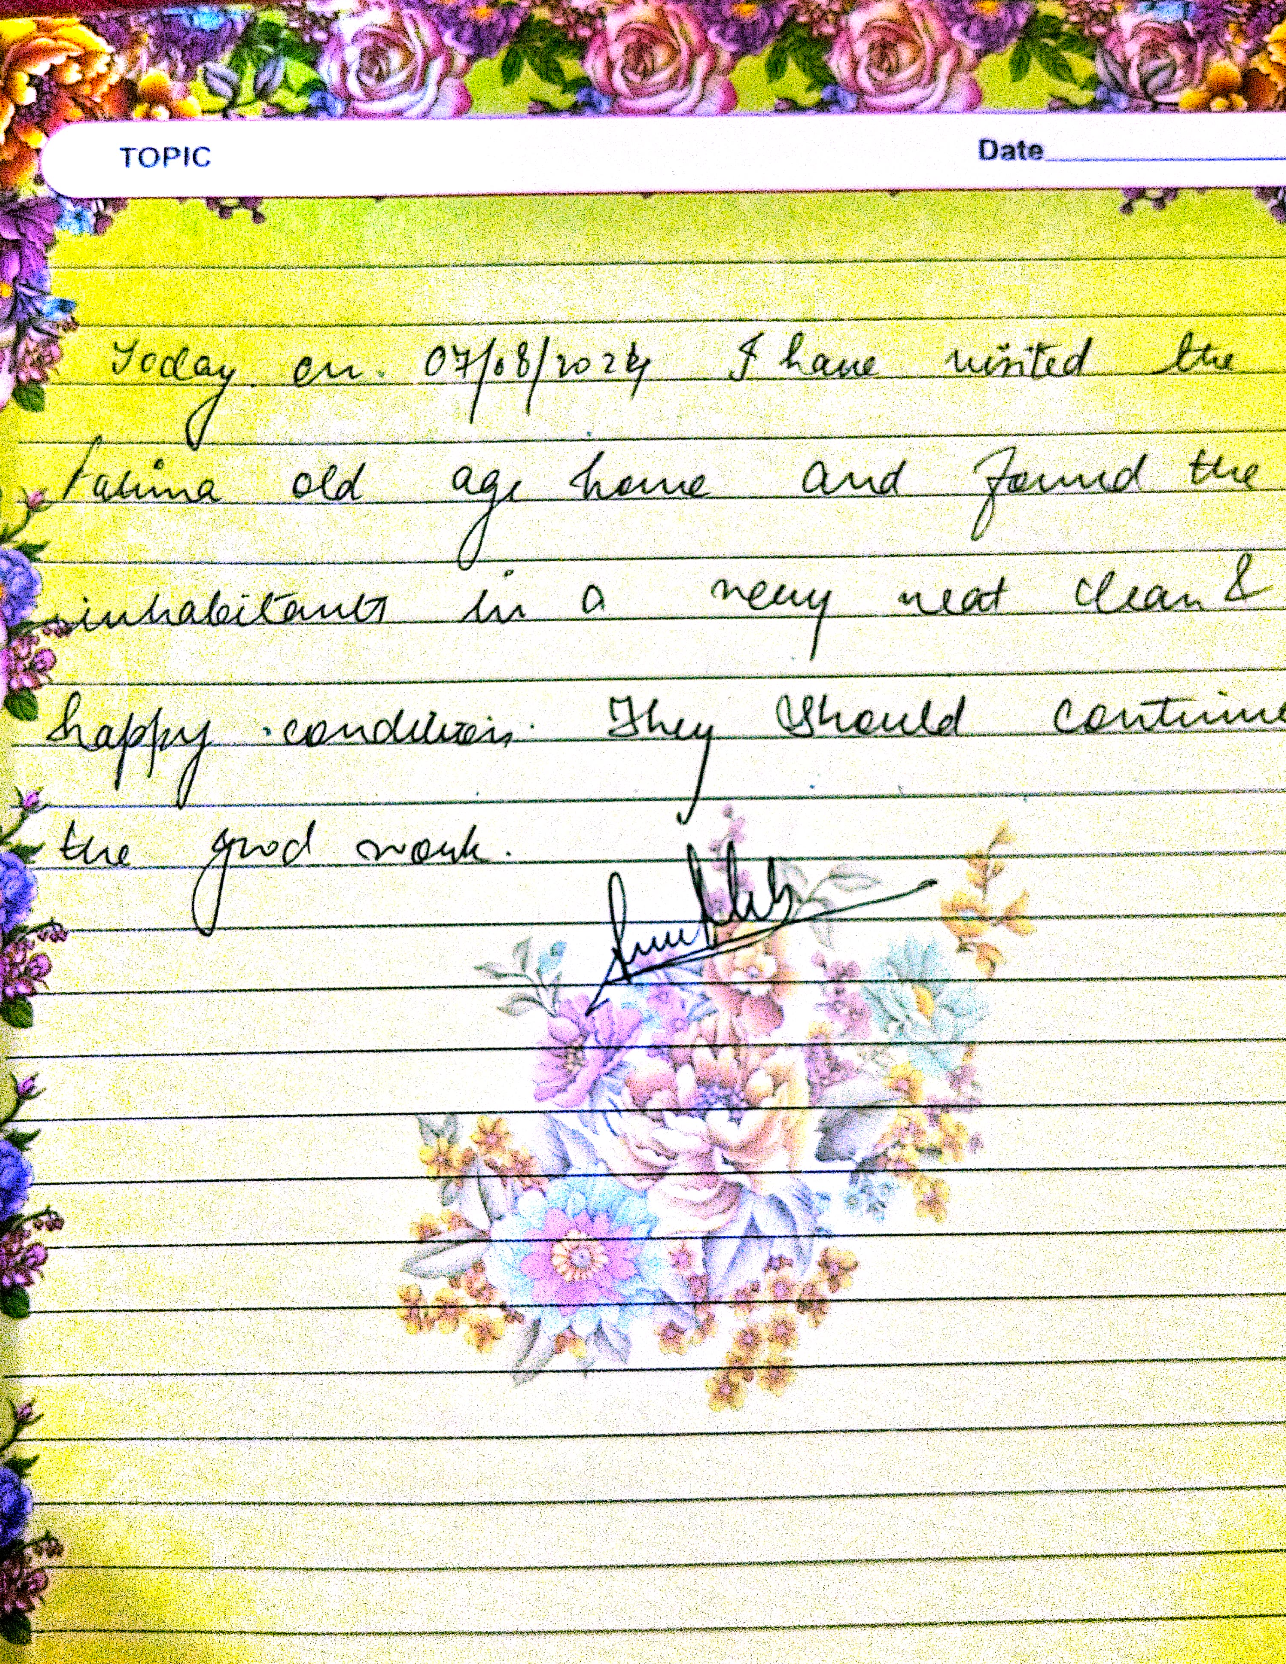 TOPIC Date
Today on 07/08/2024 I have visited the
Fatima old age home and found the
inhabitants in a very neat clean &
happy condition. They should continue
the good work.